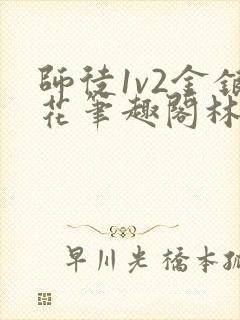 師徒1v2金銀
花筆趣閣林
早川光橋本孤